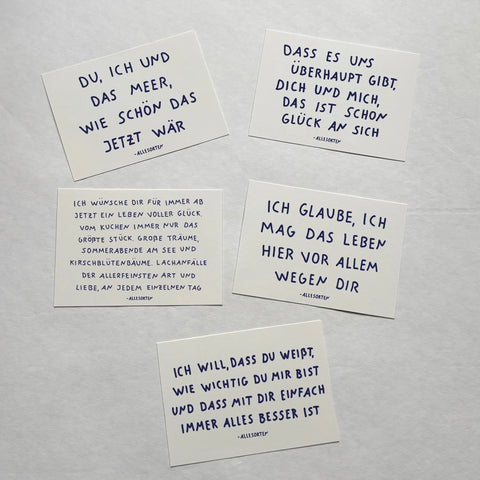 DU, ICH UND
DAS MEER,
WIE SCHÖN DAS
JETZT WÄR
-ALLESORTEN
DASS ES UNS
ÜBERHAUPT GIBT,
DICH UND MICH,
DAS IST SCHON
GLÜCK AN SICH
-ALLESORTEN
ICH WÜNSCHE DIR FÜR IMMER AB
JETZT EIN LEBEN VOLLER GLÜCK.
VOM KUCHEN IMMER NUR DAS
GRÖßTE STÜCK. GROßE TRÄUME,
SOMMERABENDE AM SEE UND
KIRSCHBLÜTENBÄUME. LACHANFÄLLE
DER ALLERFEINSTEN ART UND
LIEBE, AN JEDEM EINZELNEN TAG
-ALLESORTEN
ICH GLAUBE, ICH
MAG DAS LEBEN
HIER VOR ALLEM
WEGEN DIR
-ALLESORTEN
ICH WILL, DASS DU WEIßT,
WIE WICHTIG DU MIR BIST
UND DASS MIT DIR EINFACH
IMMER ALLES BESSER IST
-ALLESORTEN